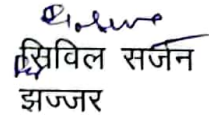 सिविल सर्जन
झज्जर